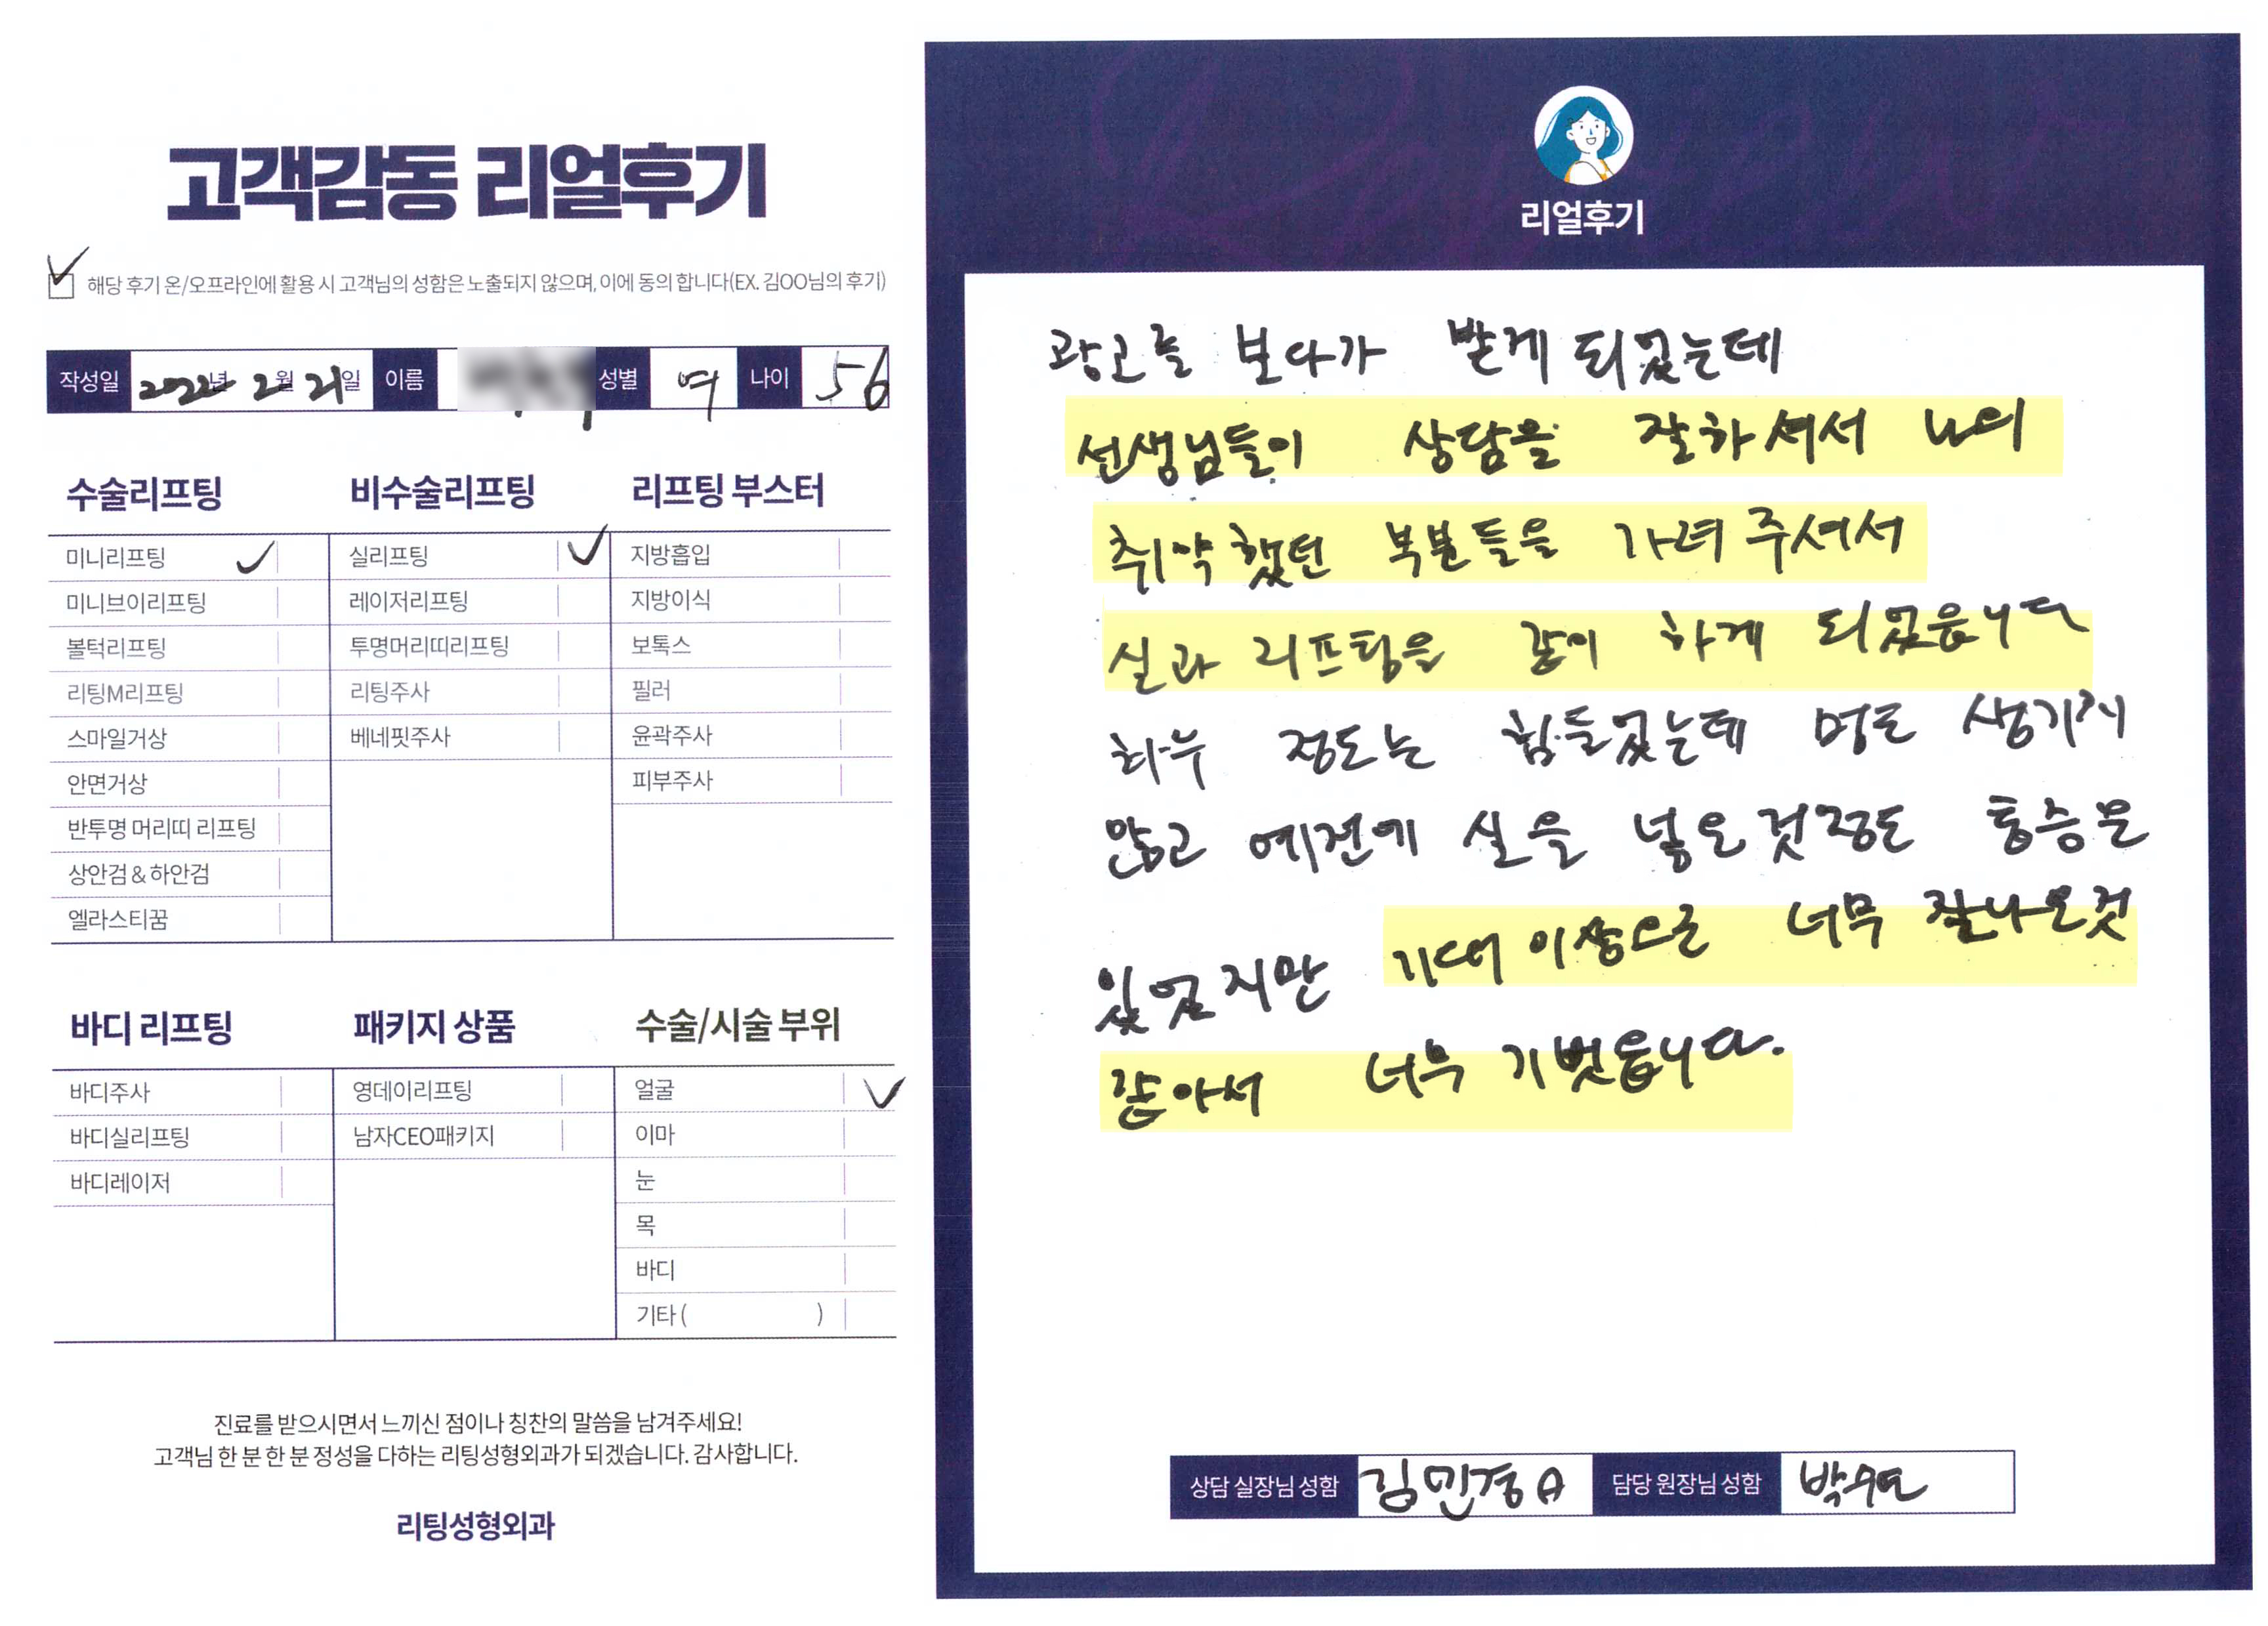 고객감동 리얼후기
해당 후기 온/오프라인에 활용 시 고객님의 성함은 노출되지 않으며, 이에 동의 합니다(EX. 김OO님의 후기)
작성일 2022년 2월 21일 이름 성별 여 나이 56
수술리프팅
미니리프팅
미니브이리프팅
볼턱리프팅
리팅M리프팅
스마일거상
안면거상
반투명 머리띠 리프팅
상안검 & 하안검
엘라스티꿈
비수술리프팅
실리프팅
레이저리프팅
투명머리띠리프팅
리팅주사
베네핏주사
리프팅 부스터
지방흡입
지방이식
보톡스
필러
윤곽주사
피부주사
바디 리프팅
바디주사
바디실리프팅
바디레이저
패키지 상품
영데이리프팅
남자CEO패키지
수술/시술 부위
얼굴
이마
눈
목
바디
기타 ( )
진료를 받으시면서 느끼신 점이나 칭찬의 말씀을 남겨주세요!
고객님 한 분 한 분 정성을 다하는 리팅성형외과가 되겠습니다. 감사합니다.
리팅성형외과
리얼후기
광고를 보다가 받게 되었는데
선생님들이 상담을 잘하셔서 나의
취약했던 부분들을 가려주셔서
실과 리프팅을 같이 하게 되었읍니다
하루 정도는 힘들었는데 멍도 생기지
않고 예전에 실을 넣은것정도 통증은
있었지만 기대 이상으로 너무 잘나온것
같아서 너무 기뻣읍니다.
상담 실장님 성함 김민경A 담당 원장님 성함